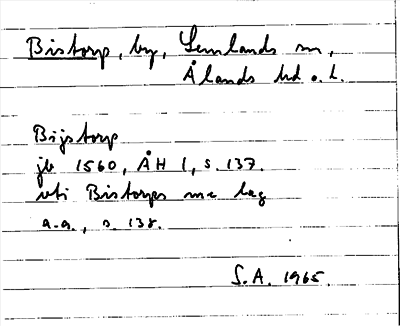 Bistorp, by, Lemlands sn,
Ålands hd o. l.
Bijstorp
jb 1560, ÅH 1, s. 137.
uti Bistorps
a.a., s. 138.
S.A. 1965.